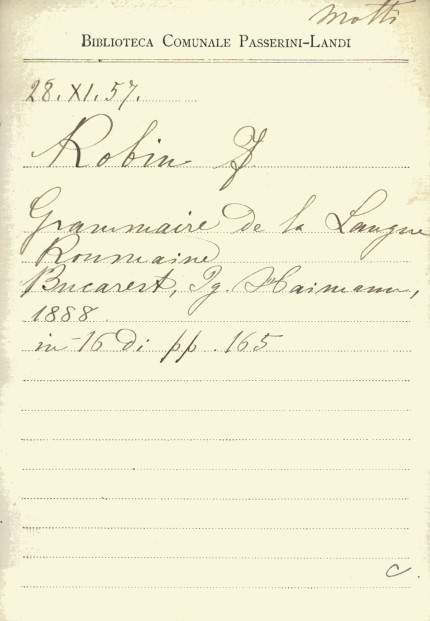 Motti
BIBLIOTECA COMUNALE PASSERINI-LANDI
28.XI.57.
Robin F
Grammaire de la Langue
Roumaine
Bucarest, Ig. Haimann,
1888
in-16 di pp. 165
C.